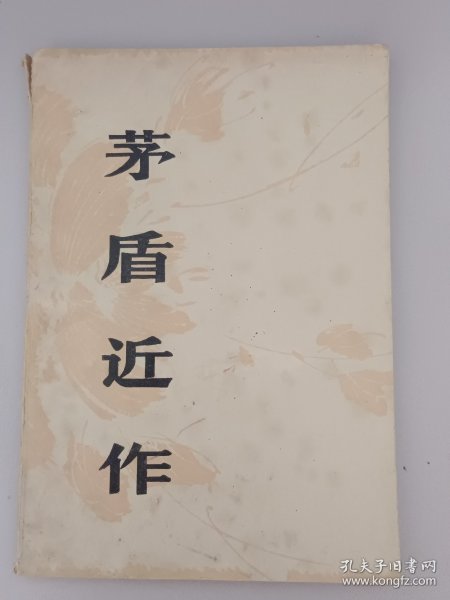 茅盾近作
孔夫子旧书网
www.kongfz.com